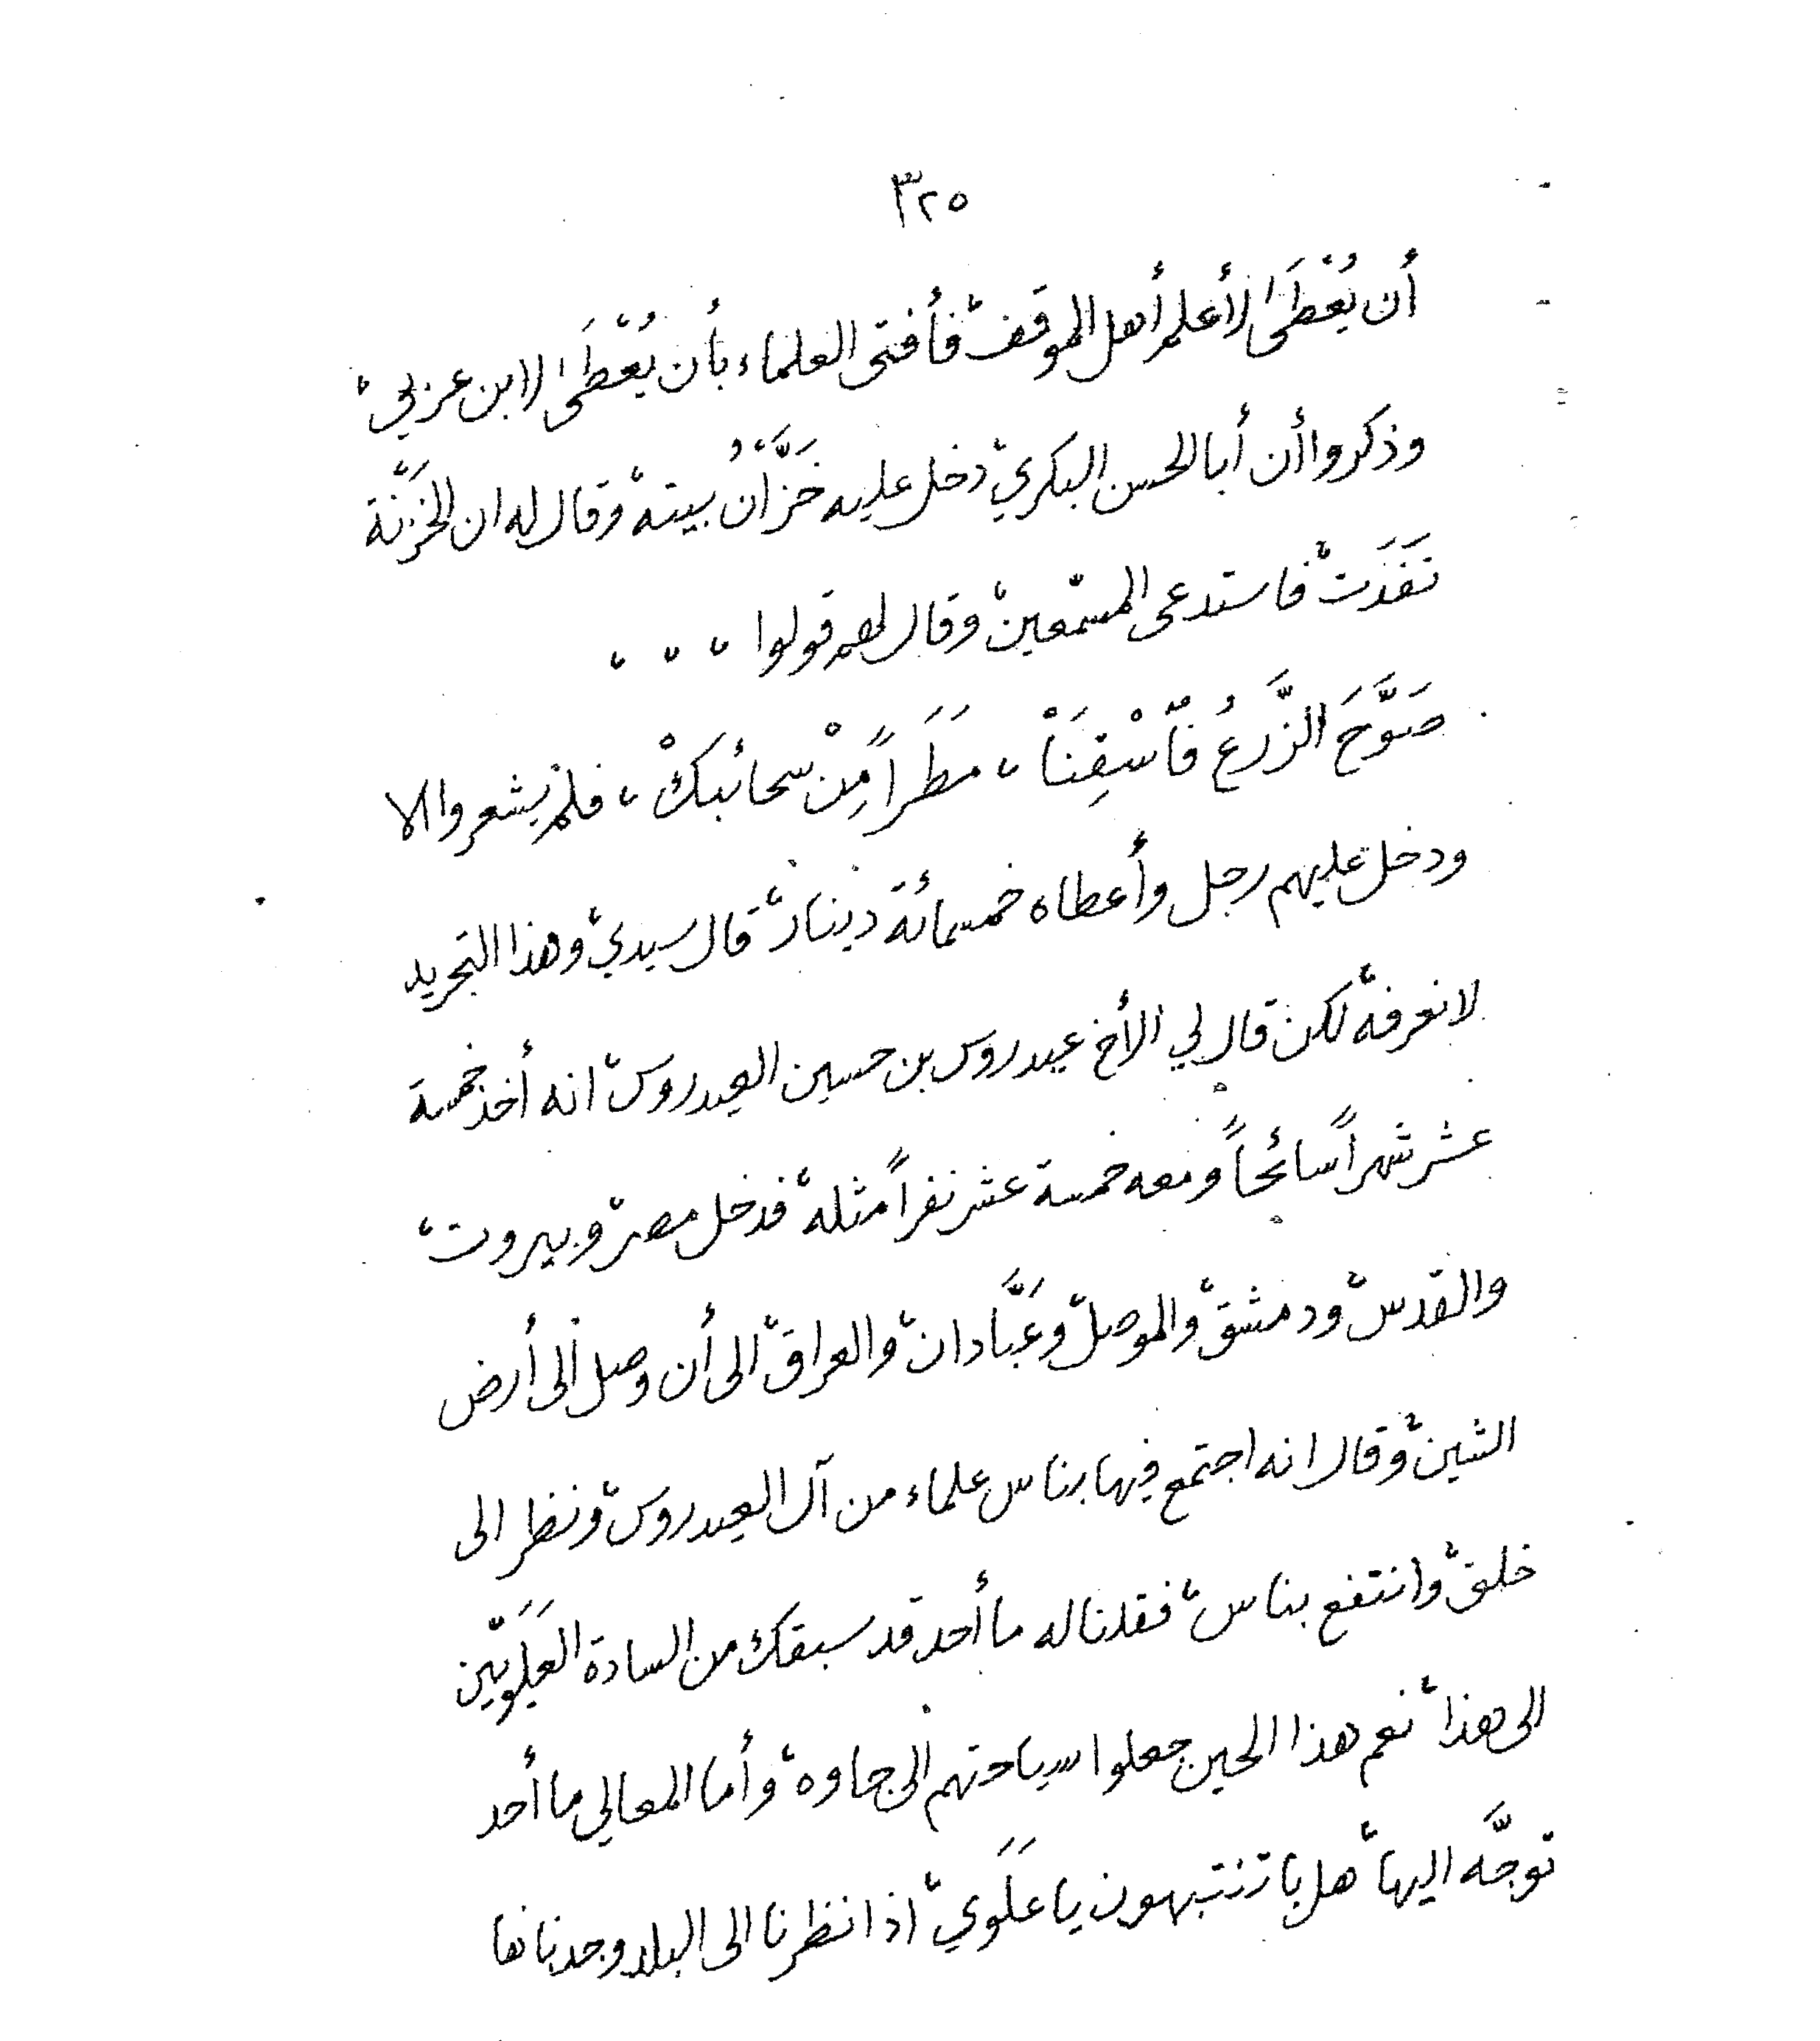 ٣٢٥
أن يُعْطَىٰ لأعلم أهل الموقف، فأفتى العلماء بأن يُعْطَىٰ لابن عربي،
وذكروا أن أبا الحسن البكري، دخل عليه خَزَّانُ بيته، وقال له ان الخَزْنَة
نَفَدَت، فاستدعى المسمّعين، وقال لهم قولوا ، ، ،
صَوَّحَ الزَّرعُ فاْسْقِنَا ، مَطَراً مِنْ سحائبكْ ، فلم يشعروا الا
ودخل عليهم رجل وأعطاه خمسمائة دينار، قال سيدي، وهذا التجريد
لا نعرفه، لكن قال لي الأخ عيدروس بن حسين العيدروس، انه أخذ خمسة
عشر شهراً سائحاً ومعه خمسة عشر نفراً مثله، فدخل مصر، وبيروت،
والقدس، ودمشق، والموصل، وعَبَّادان، والعراق، الى أن وصل الى أرض
الثين، وقال انه اجتمع فيها بناس علماء من آل العيدروس، ونظر الى
خلق، وانتفع بناس، فقلنا له ما أحد قد سبقك من السادة العَلَويّين
الى هذا، نعم هذا الحين جعلوا سياحتهم الى جاوه، وأما المعالي ما أحد
توجَّه اليها، هل با تنتبهون يا عَلَوي، اذا نظرنا الى البلد وجدناها